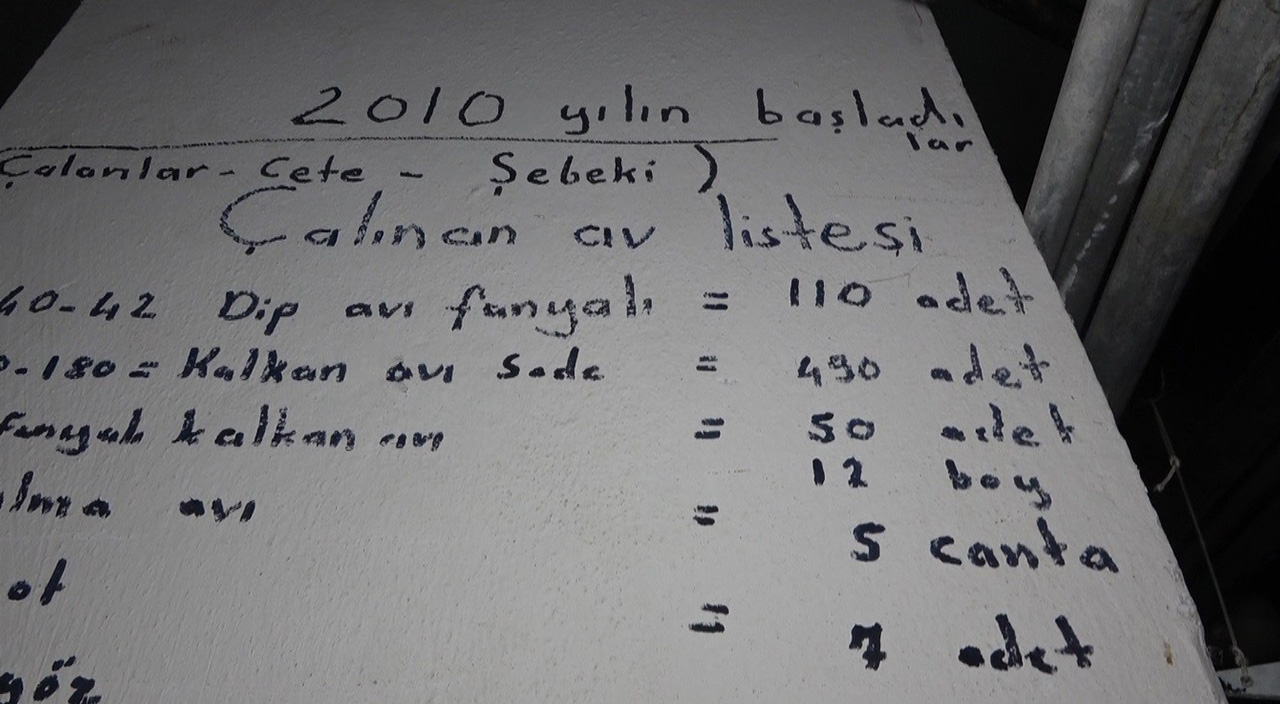 2010 yılın başladı
lar
Çalanlar - Çete - Şebeki )
Çalınan av listesi
40-42 Dip avı fanyalı = 110 adet
-180 = Kalkan avı Sade = 490 adet
fanyalı kalkan avı = 50 adet
12 boy
avı =
5 canta
=
7 adet
göz